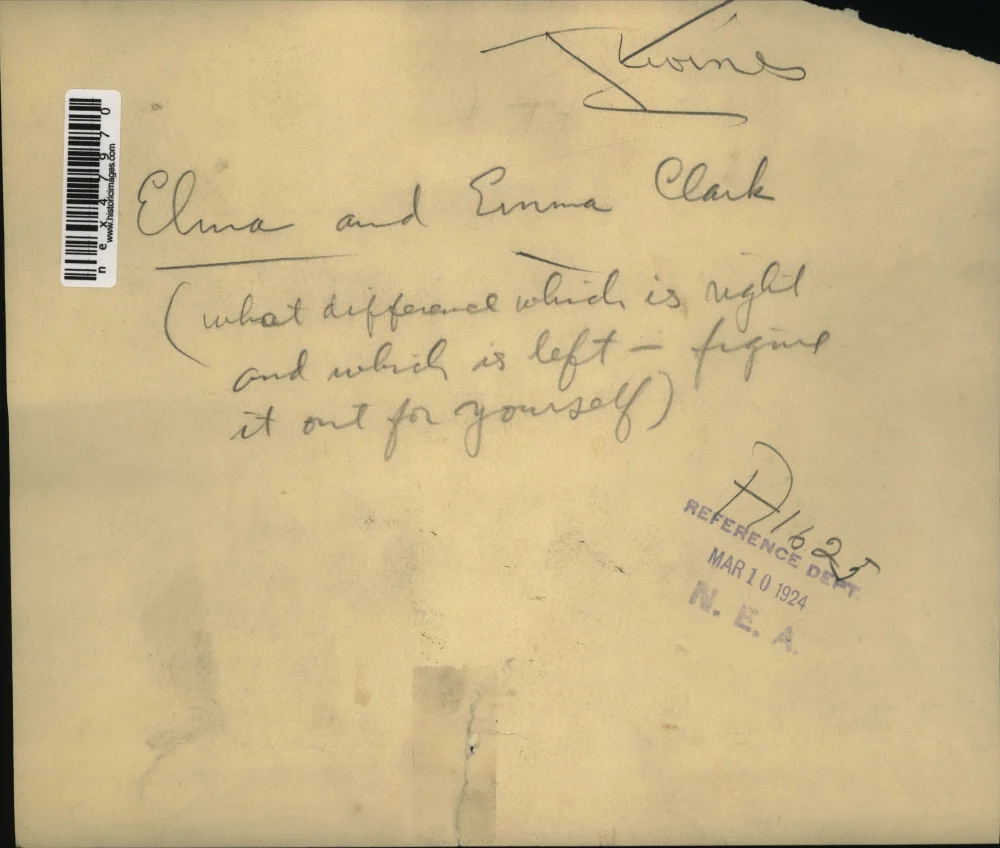 Twins
Elma and Emma Clark
(what difference which is right
and which is left — figure
it out for yourself)
A1625
REFERENCE DEPT.
MAR 10 1924
N. E. A.
nex47970
www.historicimages.com